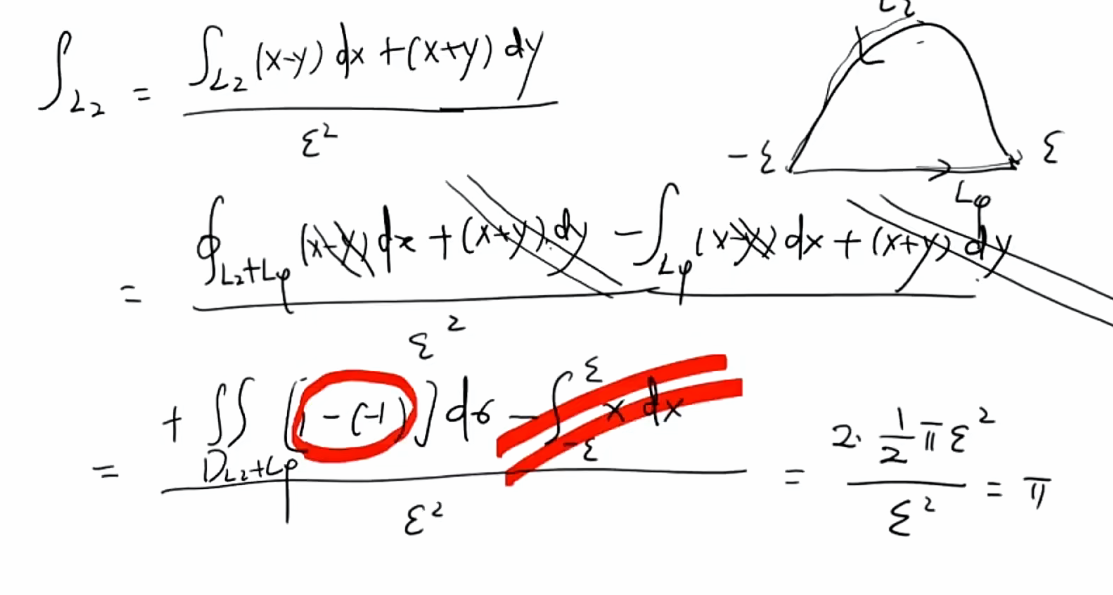 ∫_{L₂} = \frac{∫_{L₂} (x-y) dx + (x+y) dy}{ε²}
L₂
-ε
ε
L_φ
= \frac{∮_{L₂+L_φ} (x-y) dx + (x+y) dy - ∫_{L_φ} (x-y) dx + (x+y) dy}{ε²}
= \frac{+ ∬_{D_{L₂+L_φ}} [1-(-1)] dσ - ∫_{-ε}^{ε} x dx}{ε²} = \frac{2·\frac{1}{2}πε²}{ε²} = π